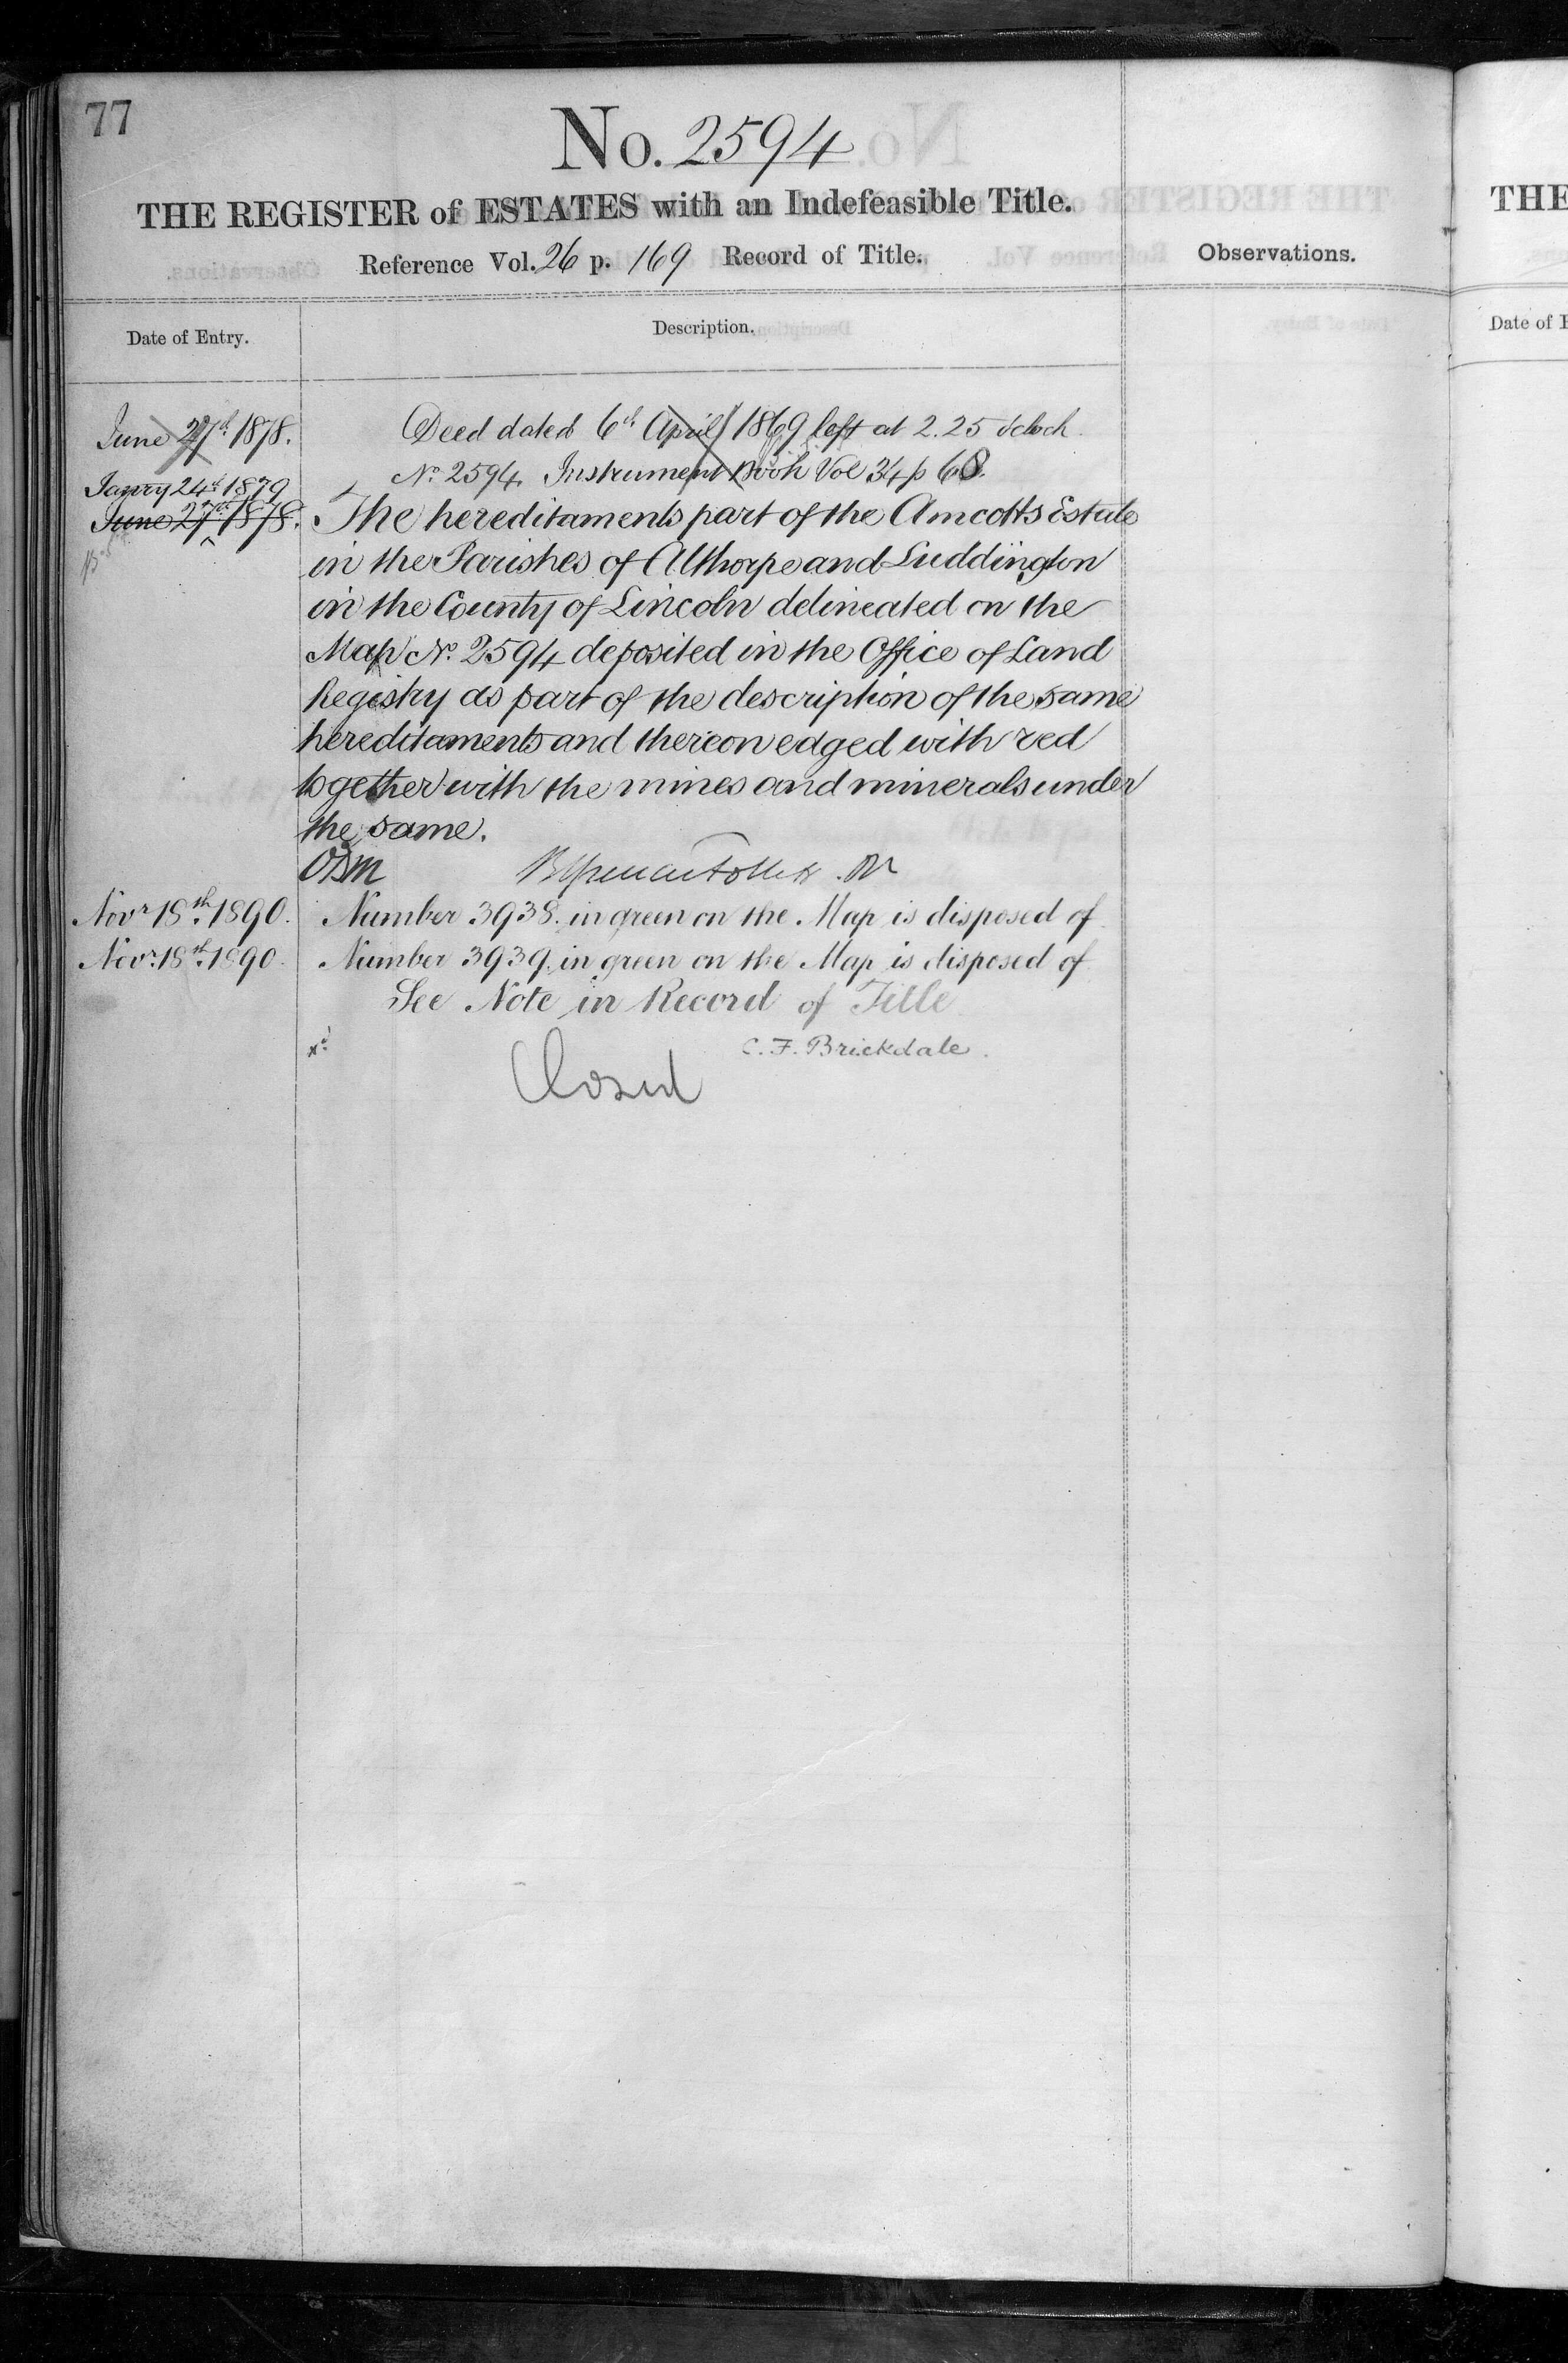 77
No. 2594
THE REGISTER of ESTATES with an Indefeasible Title.
Reference Vol. 26 p. 169 Record of Title.
Observations.
Date of Entry.
Description.
June 27th 1878. Deed dated 6th April 1869 left at 2.25 o'clock
No. 2594 Instrument Book Vol 34 p 68.
Janry 24th 1879
June 27th 1878. The hereditaments part of the Amcotts Estate
in the Parishes of Althorpe and Luddington
in the County of Lincoln delineated on the
Map No. 2594 deposited in the Office of Land
Registry as part of the description of the same
hereditaments and thereon edged with red
together with the mines and minerals under
the same.
Novr 18th 1890. Number 3938 in green on the Map is disposed of
Novr 18th 1890. Number 3939 in green on the Map is disposed of
See Note in Record of Title
C. F. Brickdale.
Closed
THE
Date of E